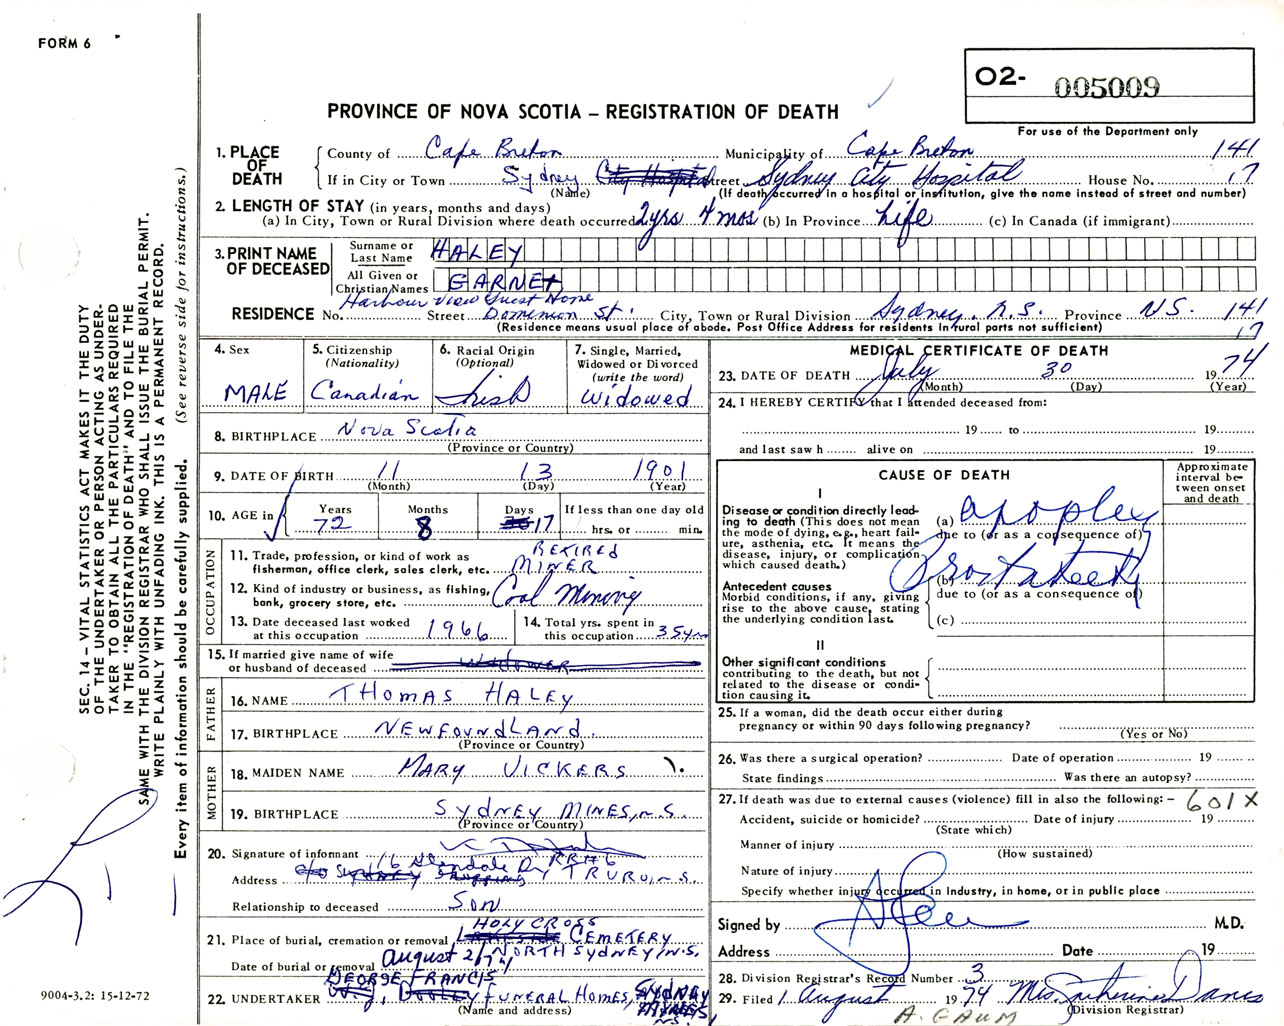 FORM 6
O2- 005009
PROVINCE OF NOVA SCOTIA – REGISTRATION OF DEATH
For use of the Department only
1. PLACE OF DEATH
County of Cape Breton Municipality of Cape Breton 141
If in City or Town Sydney Street Sydney City Hospital House No. 17
(Name) (If death occurred in a hospital or institution, give the name instead of street and number)
2. LENGTH OF STAY (in years, months and days)
(a) In City, Town or Rural Division where death occurred 2yrs 4 mos (b) In Province Life (c) In Canada (if immigrant)
3. PRINT NAME OF DECEASED
Surname or Last Name HALEY
All Given or Christian Names GARNET
Harbour View Guest Home
RESIDENCE No. Street Dominion St. City, Town or Rural Division Sydney, N.S. Province N.S. 141
(Residence means usual place of abode. Post Office Address for residents in rural parts not sufficient) 17
4. Sex
MALE
5. Citizenship
(Nationality)
Canadian
6. Racial Origin
(Optional)
Irish
7. Single, Married,
Widowed or Divorced
(write the word)
Widowed
8. BIRTHPLACE Nova Scotia
(Province or Country)
9. DATE OF BIRTH 11 13 1901
(Month) (Day) (Year)
10. AGE in Years Months Days If less than one day old
72 8 17 hrs. or min.
OCCUPATION
11. Trade, profession, or kind of work as
fisherman, office clerk, sales clerk, etc. RETIRED MINER
12. Kind of industry or business, as fishing,
bank, grocery store, etc. Coal Mining
13. Date deceased last worked
at this occupation 1966
14. Total yrs. spent in
this occupation 35 yrs
15. If married give name of wife
or husband of deceased WIDOWER
FATHER
16. NAME THOMAS HALEY
17. BIRTHPLACE NEWFOUNDLAND
(Province or Country)
MOTHER
18. MAIDEN NAME MARY VICKERS
19. BIRTHPLACE SYDNEY MINES, N.S.
(Province or Country)
20. Signature of informant
Address 16 Glendale Dr RR#6 TRURO, N.S.
Relationship to deceased SON
21. Place of burial, cremation or removal HOLY CROSS CEMETERY
NORTH SYDNEY, N.S.
Date of burial or removal August 2/74
22. UNDERTAKER GEORGE FRANCIS FUNERAL HOMES, SYDNEY MINES N.S.
(Name and address)
MEDICAL CERTIFICATE OF DEATH
23. DATE OF DEATH July 30 1974
(Month) (Day) (Year)
24. I HEREBY CERTIFY that I attended deceased from:
19 to 19
and last saw h alive on 19
CAUSE OF DEATH
Approximate interval between onset and death
I
Disease or condition directly leading to death (This does not mean the mode of dying, e.g., heart failure, asthenia, etc. It means the disease, injury, or complication which caused death.)
(a) apoplexy
due to (or as a consequence of)
Antecedent causes
Morbid conditions, if any, giving rise to the above cause, stating the underlying condition last.
(b)
due to (or as a consequence of)
(c)
II
Other significant conditions
contributing to the death, but not related to the disease or condition causing it.
25. If a woman, did the death occur either during
pregnancy or within 90 days following pregnancy?
(Yes or No)
26. Was there a surgical operation? Date of operation 19
State findings Was there an autopsy?
27. If death was due to external causes (violence) fill in also the following: – 601X
Accident, suicide or homicide? Date of injury 19
(State which)
Manner of injury
(How sustained)
Nature of injury
Specify whether injury occurred in Industry, in home, or in public place
Signed by M.D.
Address Date 19
28. Division Registrar's Record Number 3
29. Filed 1 August 1974 Mrs. Catherine Davis
(Division Registrar)
A. GAUM
SEC. 14 – VITAL STATISTICS ACT MAKES IT THE DUTY
OF THE UNDERTAKER OR PERSON ACTING AS UNDER-
TAKER TO OBTAIN ALL THE PARTICULARS REQUIRED
IN THE "REGISTRATION OF DEATH" AND TO FILE THE
SAME WITH THE DIVISION REGISTRAR WHO SHALL ISSUE THE BURIAL PERMIT.
WRITE PLAINLY WITH UNFADING INK. THIS IS A PERMANENT RECORD.
Every item of information should be carefully supplied. (See reverse side for instructions.)
9004-3.2: 15-12-72